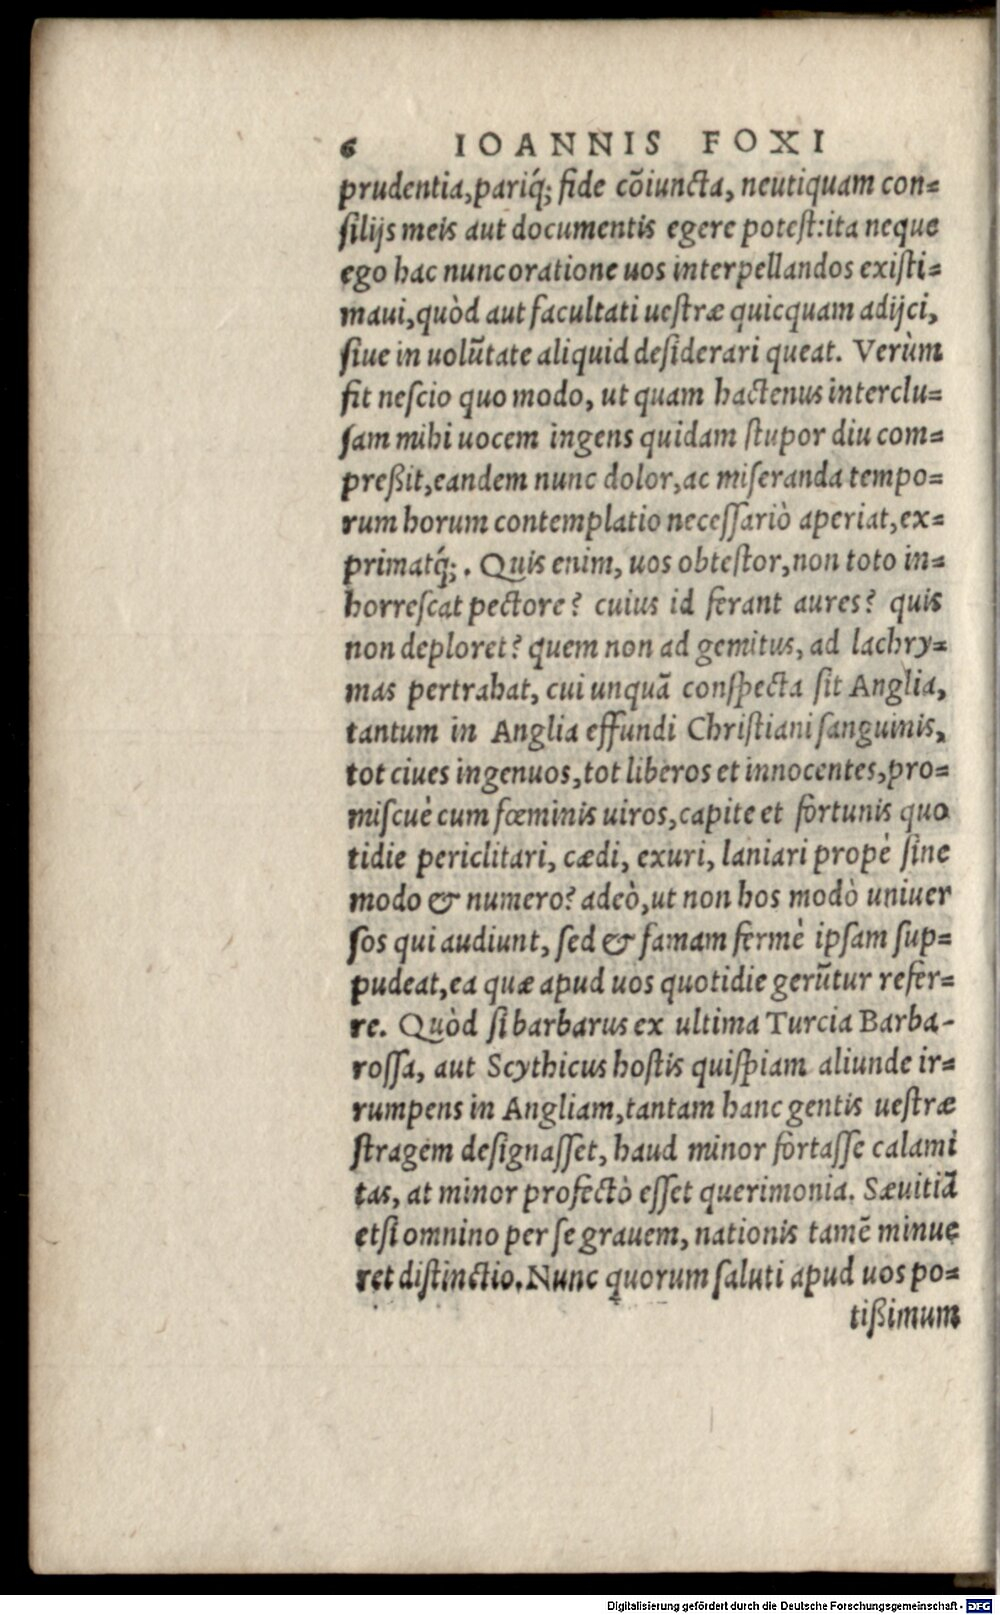 6 IOANNIS FOXI
prudentia, pariq́; fide cõiuncta, neutiquam con=
ſilijs meis aut documentis egere poteſt: ita neque
ego hac nunc oratione uos interpellandos existi=
maui, quòd aut facultati ueſtræ quicquam adijci,
ſiue in uolũtate aliquid deſiderari queat. Verùm
fit neſcio quo modo, ut quam hactenus interclu=
ſam mihi uocem ingens quidam ſtupor diu com=
preßit, eandem nunc dolor, ac miſeranda tempo=
rum horum contemplatio neceſſariò aperiat, ex=
primatq́;. Quis enim, uos obteſtor, non toto in=
horreſcat pectore? cuius id ferant aures? quis
non deploret? quem non ad gemitus, ad lachry=
mas pertrahat, cui unquã conſpecta ſit Anglia,
tantum in Anglia effundi Chriſtiani ſanguinis,
tot ciues ingenuos, tot liberos et innocentes, pro=
miſcuè cum fœminis uiros, capite et fortunis quo
tidie periclitari, cædi, exuri, laniari propè ſine
modo & numero? adeò, ut non hos modò uniuer
ſos qui audiunt, ſed & famam fermè ipſam ſup=
pudeat, ea quæ apud uos quotidie gerũtur refer=
re. Quòd ſi barbarus ex ultima Turcia Barba-
roſſa, aut Scythicus hoſtis quiſpiam aliunde ir=
rumpens in Angliam, tantam hanc gentis ueſtræ
ſtragem deſignaſſet, haud minor fortaſſe calami
tas, at minor profectò eſſet querimonia. Sæuitiã
etſi omnino per ſe grauem, nationis tamẽ minue
ret diſtinctio. Nunc quorum ſaluti apud uos po=
tißimum
Digitalisierung gefördert durch die Deutsche Forschungsgemeinschaft - DFG